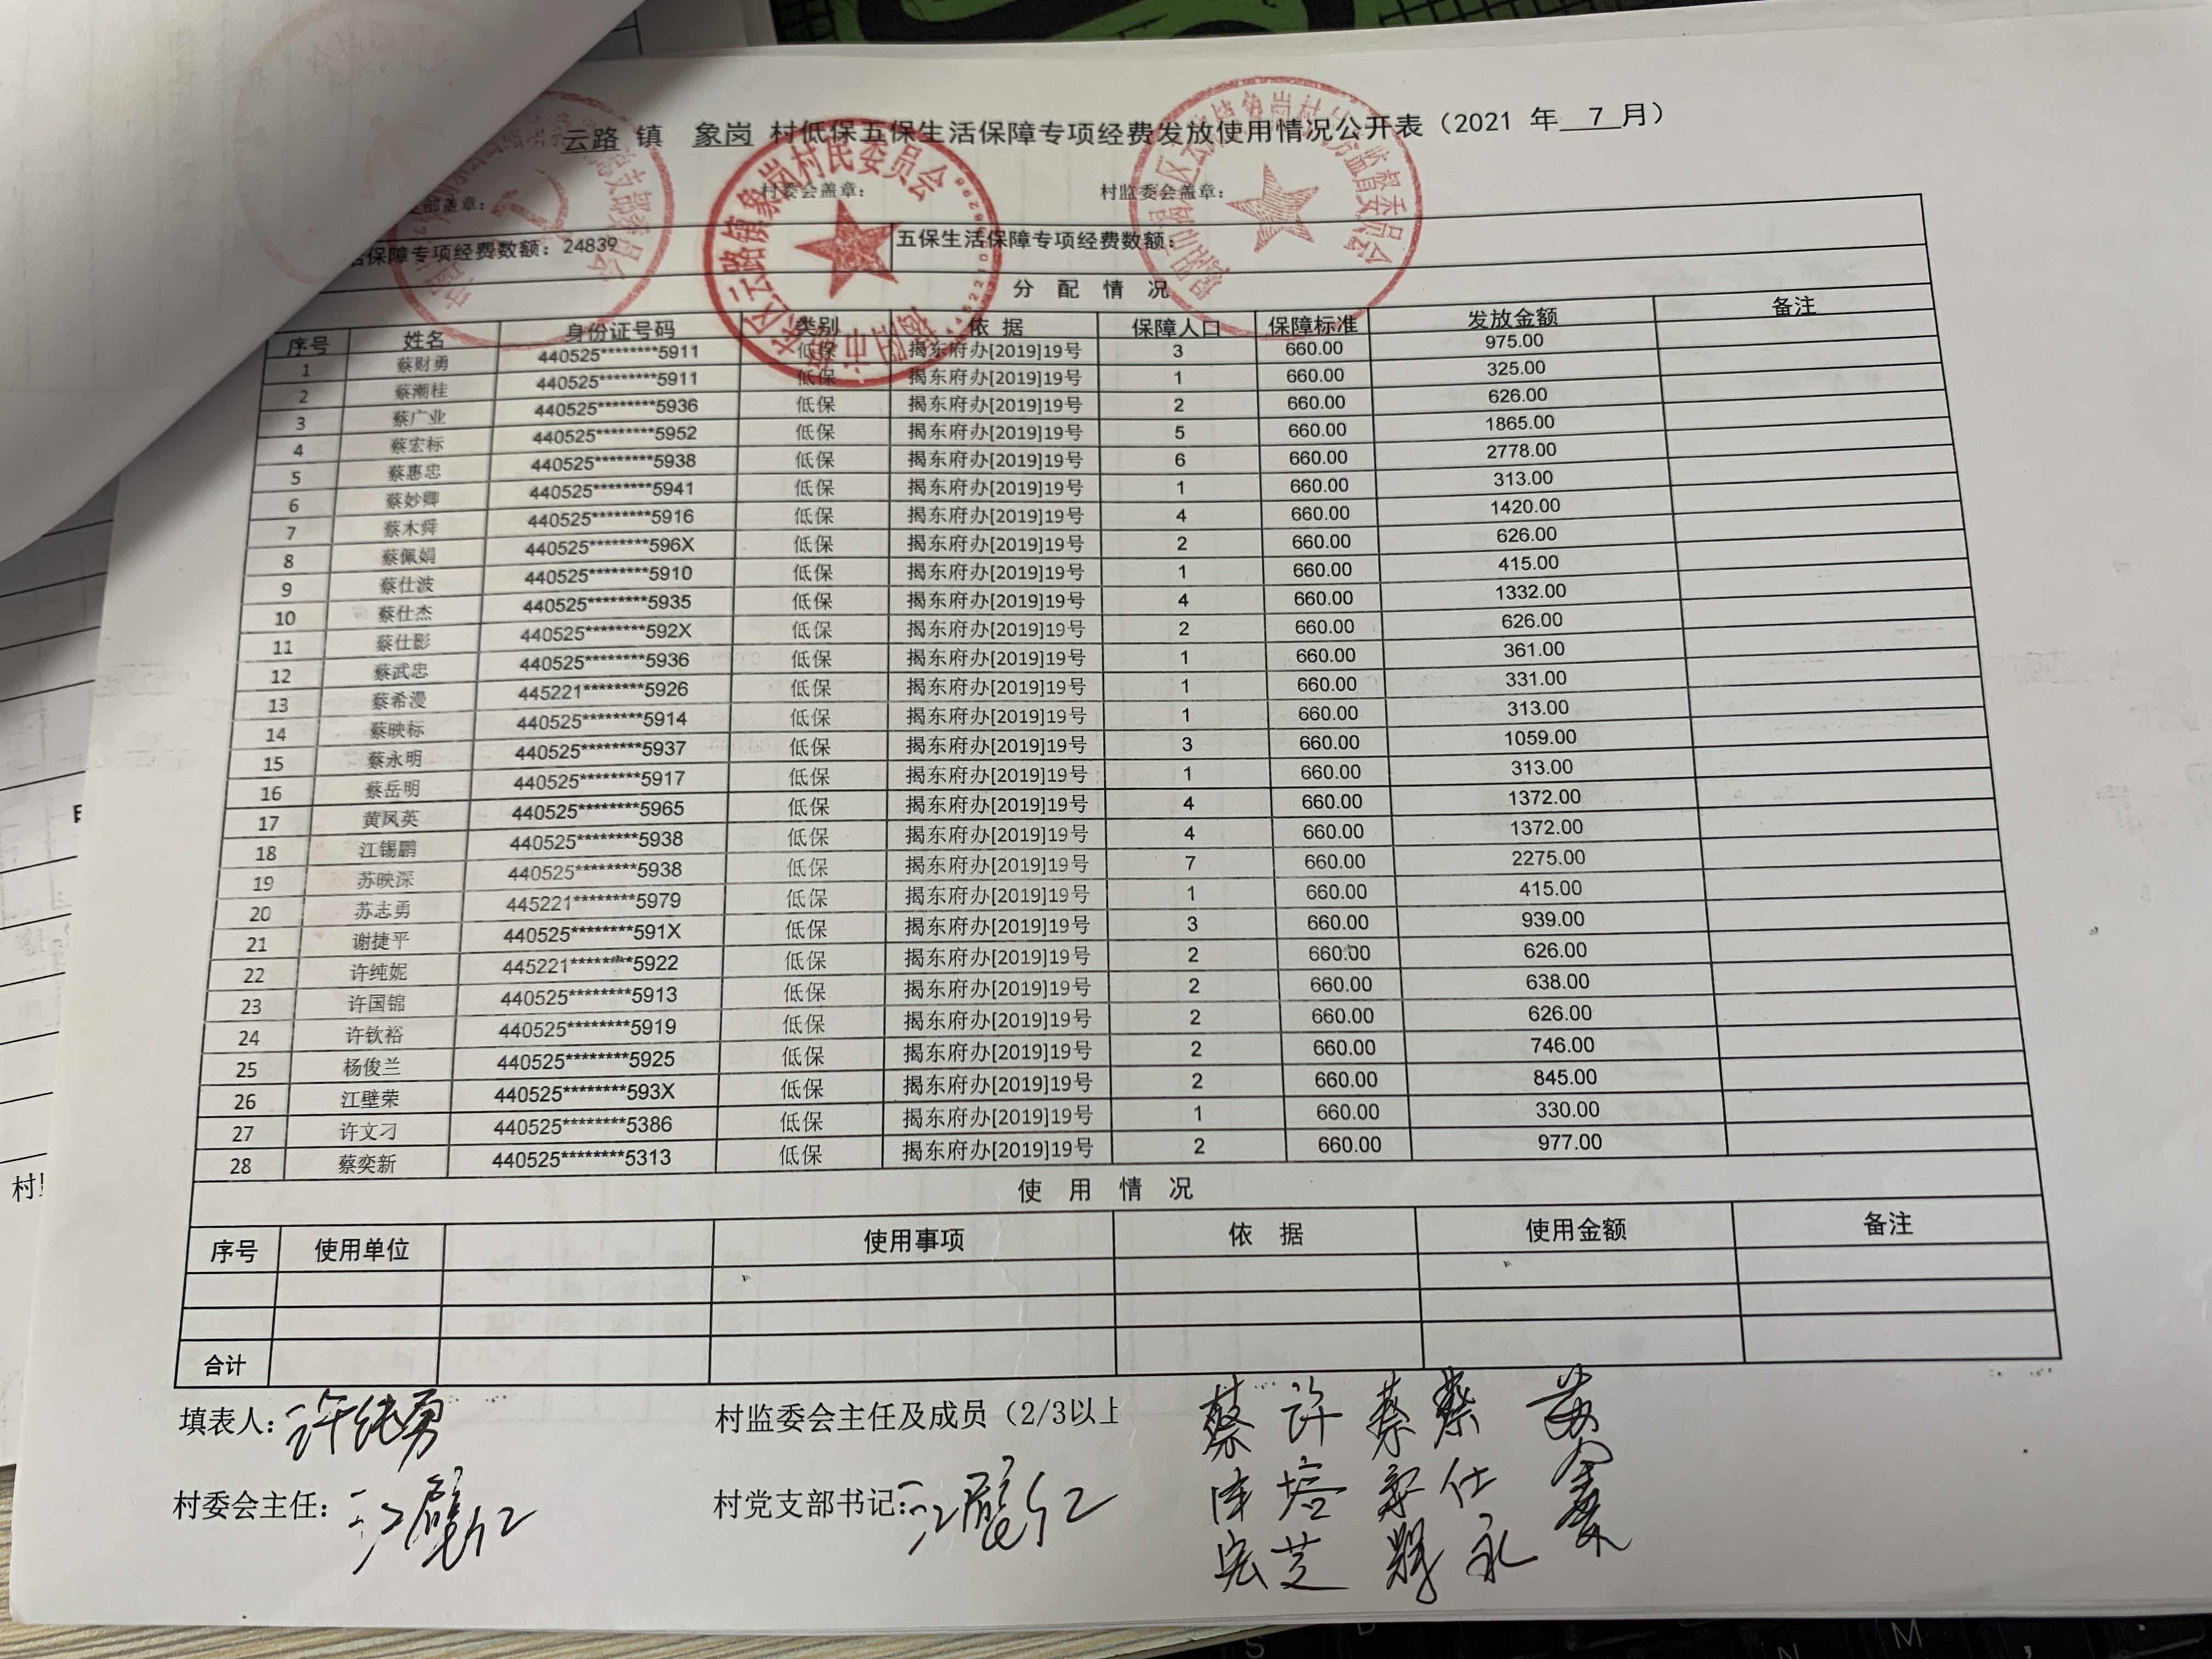 云路 镇 象岗 村低保五保生活保障专项经费发放使用情况公开表（2021 年 7 月）
部盖章： 村委会盖章： 村监委会盖章：
活保障专项经费数额：24839 五保生活保障专项经费数额：
分 配 情 况
序号 姓名 身份证号码 类别 依 据 保障人口 保障标准 发放金额 备注
1 蔡财勇 440525********5911 低保 揭东府办[2019]19号 3 660.00 975.00
2 蔡潮桂 440525********5911 低保 揭东府办[2019]19号 1 660.00 325.00
3 蔡广业 440525********5936 低保 揭东府办[2019]19号 2 660.00 626.00
4 蔡宏标 440525********5952 低保 揭东府办[2019]19号 5 660.00 1865.00
5 蔡惠忠 440525********5938 低保 揭东府办[2019]19号 6 660.00 2778.00
6 蔡妙卿 440525********5941 低保 揭东府办[2019]19号 1 660.00 313.00
7 蔡木舜 440525********5916 低保 揭东府办[2019]19号 4 660.00 1420.00
8 蔡佩娟 440525********596X 低保 揭东府办[2019]19号 2 660.00 626.00
9 蔡仕波 440525********5910 低保 揭东府办[2019]19号 1 660.00 415.00
10 蔡仕杰 440525********5935 低保 揭东府办[2019]19号 4 660.00 1332.00
11 蔡仕影 440525********592X 低保 揭东府办[2019]19号 2 660.00 626.00
12 蔡武忠 440525********5936 低保 揭东府办[2019]19号 1 660.00 361.00
13 蔡希漫 445221********5926 低保 揭东府办[2019]19号 1 660.00 331.00
14 蔡映标 440525********5914 低保 揭东府办[2019]19号 1 660.00 313.00
15 蔡永明 440525********5937 低保 揭东府办[2019]19号 3 660.00 1059.00
16 蔡岳明 440525********5917 低保 揭东府办[2019]19号 1 660.00 313.00
17 黄凤英 440525********5965 低保 揭东府办[2019]19号 4 660.00 1372.00
18 江锡鹏 440525********5938 低保 揭东府办[2019]19号 4 660.00 1372.00
19 苏映深 440525********5938 低保 揭东府办[2019]19号 7 660.00 2275.00
20 苏志勇 445221********5979 低保 揭东府办[2019]19号 1 660.00 415.00
21 谢捷平 440525********591X 低保 揭东府办[2019]19号 3 660.00 939.00
22 许纯妮 445221********5922 低保 揭东府办[2019]19号 2 660.00 626.00
23 许国锦 440525********5913 低保 揭东府办[2019]19号 2 660.00 638.00
24 许钦裕 440525********5919 低保 揭东府办[2019]19号 2 660.00 626.00
25 杨俊兰 440525********5925 低保 揭东府办[2019]19号 2 660.00 746.00
26 江壁荣 440525********593X 低保 揭东府办[2019]19号 2 660.00 845.00
27 许文刁 440525********5386 低保 揭东府办[2019]19号 1 660.00 330.00
28 蔡奕新 440525********5313 低保 揭东府办[2019]19号 2 660.00 977.00
使 用 情 况
序号 使用单位 使用事项 依 据 使用金额 备注
合计
填表人：许纯勇 村监委会主任及成员（2/3以上
村委会主任： 村党支部书记：